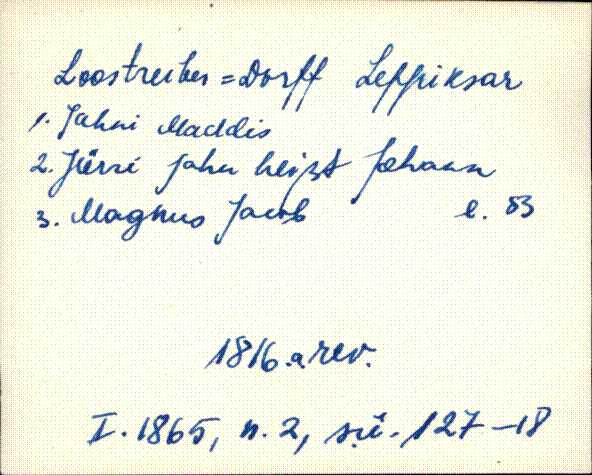 Loostreiber = Dorff Leppiksar
1. Jahni Maddis
2. Jürri Jahn heißt Johann
3. Magnus Jacob l. 83
1816.a.rev.
I. 1865, n. 2, sü. 127-18